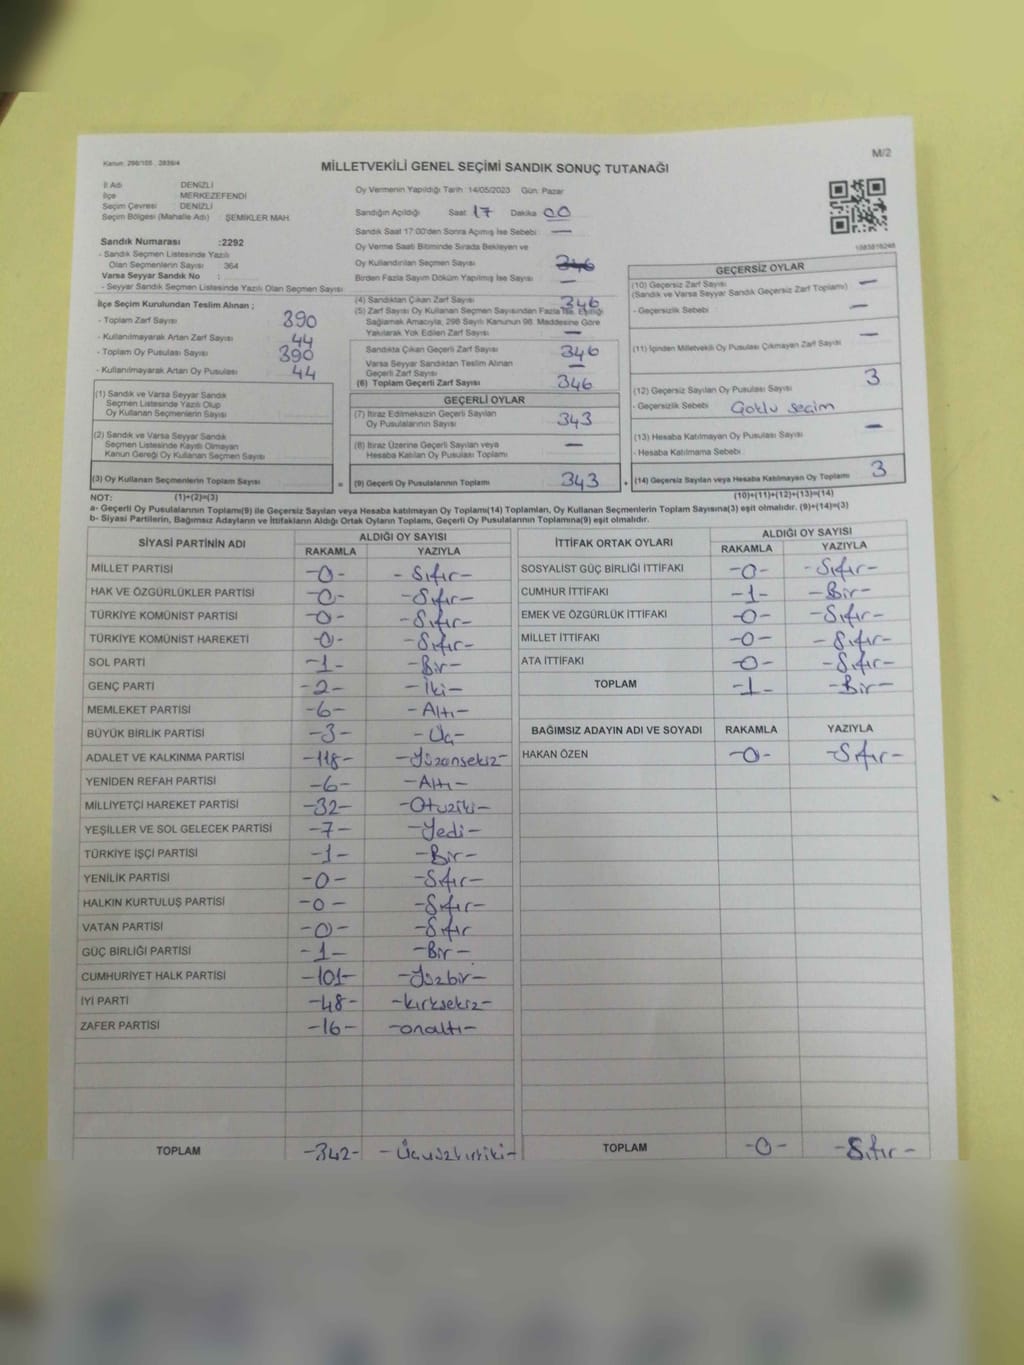 Kanun: 298/105 , 2839/4
M/2
MİLLETVEKİLİ GENEL SEÇİMİ SANDIK SONUÇ TUTANAĞI
İl Adı : DENİZLİ
İlçe : MERKEZEFENDİ
Seçim Çevresi : DENİZLİ
Seçim Bölgesi (Mahalle Adı) : ŞEMİKLER MAH.
Sandık Numarası :2292
- Sandık Seçmen Listesinde Yazılı
Olan Seçmenlerin Sayısı : 364
Varsa Seyyar Sandık No :
- Seyyar Sandık Seçmen Listesinde Yazılı Olan Seçmen Sayısı
Oy Vermenin Yapıldığı Tarih: 14/05/2023 Gün: Pazar
Sandığın Açıldığı Saat 17 Dakika 00
Sandık Saat 17:00'den Sonra Açılmış İse Sebebi : —
Oy Verme Saati Bitiminde Sırada Bekleyen ve
Oy Kullandırılan Seçmen Sayısı 346
Birden Fazla Sayım Döküm Yapılmış İse Sayısı —
İlçe Seçim Kurulundan Teslim Alınan ;
- Toplam Zarf Sayısı 390
- Kullanılmayarak Artan Zarf Sayısı 44
- Toplam Oy Pusulası Sayısı 390
- Kullanılmayarak Artan Oy Pusulası 44
(1) Sandık ve Varsa Seyyar Sandık
Seçmen Listesinde Yazılı Olup
Oy Kullanan Seçmenlerin Sayısı
(2) Sandık ve Varsa Seyyar Sandık
Seçmen Listesinde Kayıtlı Olmayan
Kanun Gereği Oy Kullanan Seçmen Sayısı
(3) Oy Kullanan Seçmenlerin Toplam Sayısı =
(4) Sandıktan Çıkan Zarf Sayısı 346
(5) Zarf Sayısı Oy Kullanan Seçmen Sayısından Fazla İse, Eşitliği
Sağlamak Amacıyla, 298 Sayılı Kanunun 98. Maddesine Göre
Yakılarak Yok Edilen Zarf Sayısı —
Sandıkta Çıkan Geçerli Zarf Sayısı 346
Varsa Seyyar Sandıktan Teslim Alınan
Geçerli Zarf Sayısı —
(6) Toplam Geçerli Zarf Sayısı 346
GEÇERLİ OYLAR
(7) İtiraz Edilmeksizin Geçerli Sayılan
Oy Pusulalarının Sayısı 343
(8) İtiraz Üzerine Geçerli Sayılan veya
Hesaba Katılan Oy Pusulası Toplamı —
(9) Geçerli Oy Pusulalarının Toplamı 343 +
GEÇERSİZ OYLAR
(10) Geçersiz Zarf Sayısı —
(Sandık ve Varsa Seyyar Sandık Geçersiz Zarf Toplamı)
- Geçersizlik Sebebi : —
(11) İçinden Milletvekili Oy Pusulası Çıkmayan Zarf Sayısı —
(12) Geçersiz Sayılan Oy Pusulası Sayısı 3
- Geçersizlik Sebebi : Çoklu seçim
(13) Hesaba Katılmayan Oy Pusulası Sayısı —
- Hesaba Katılmama Sebebi :
(14) Geçersiz Sayılan veya Hesaba Katılmayan Oy Toplamı 3
NOT: (1)+(2)=(3) (10)+(11)+(12)+(13)=(14)
a- Geçerli Oy Pusulalarının Toplamı(9) ile Geçersiz Sayılan veya Hesaba katılmayan Oy Toplamı(14) Toplamları, Oy Kullanan Seçmenlerin Toplam Sayısına(3) eşit olmalıdır. (9)+(14)=(3)
b- Siyasi Partilerin, Bağımsız Adayların ve İttifakların Aldığı Ortak Oyların Toplamı, Geçerli Oy Pusulalarının Toplamına(9) eşit olmalıdır.
SİYASİ PARTİNİN ADI ALDIĞI OY SAYISI
RAKAMLA YAZIYLA
MİLLET PARTİSİ -0- -Sıfır-
HAK VE ÖZGÜRLÜKLER PARTİSİ -0- -Sıfır-
TÜRKİYE KOMÜNİST PARTİSİ -0- -Sıfır-
TÜRKİYE KOMÜNİST HAREKETİ -0- -Sıfır-
SOL PARTİ -1- -Bir-
GENÇ PARTİ -2- -İki-
MEMLEKET PARTİSİ -6- -Altı-
BÜYÜK BİRLİK PARTİSİ -3- -Üç-
ADALET VE KALKINMA PARTİSİ -118- -Yüzonsekiz-
YENİDEN REFAH PARTİSİ -6- -Altı-
MİLLİYETÇİ HAREKET PARTİSİ -32- -Otuziki-
YEŞİLLER VE SOL GELECEK PARTİSİ -7- -Yedi-
TÜRKİYE İŞÇİ PARTİSİ -1- -Bir-
YENİLİK PARTİSİ -0- -Sıfır-
HALKIN KURTULUŞ PARTİSİ -0- -Sıfır-
VATAN PARTİSİ -0- -Sıfır
GÜÇ BİRLİĞİ PARTİSİ -1- -Bir-
CUMHURİYET HALK PARTİSİ -101- -Yüzbir-
İYİ PARTİ -48- -kırksekiz-
ZAFER PARTİSİ -16- -onaltı-
TOPLAM -342- -Üçyüzkırkiki-
İTTİFAK ORTAK OYLARI ALDIĞI OY SAYISI
RAKAMLA YAZIYLA
SOSYALİST GÜÇ BİRLİĞİ İTTİFAKI -0- -Sıfır-
CUMHUR İTTİFAKI -1- -Bir-
EMEK VE ÖZGÜRLÜK İTTİFAKI -0- -Sıfır-
MİLLET İTTİFAKI -0- -Sıfır-
ATA İTTİFAKI -0- -Sıfır-
TOPLAM -1- -Bir-
BAĞIMSIZ ADAYIN ADI VE SOYADI RAKAMLA YAZIYLA
HAKAN ÖZEN -0- -Sıfır-
TOPLAM -0- -Sıfır-